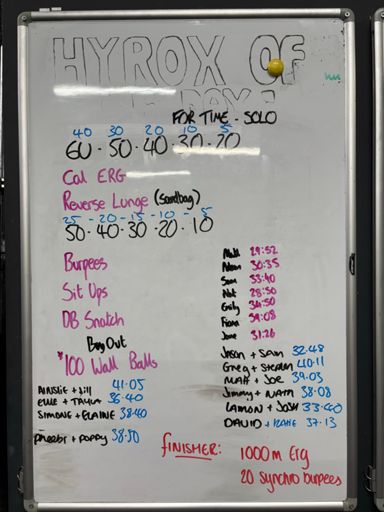 HYROX OF
FOR TIME - SOLO
40 30 20 10 5
60 - 50 - 40 - 30 - 20
Cal ERG
Reverse Lunge (Sandbag)
25 - 20 - 15 - 10 - 5
50 - 40 - 30 - 20 - 10
Burpees
Sit Ups
DB Snatch
Buy Out
*100 Wall Balls
29:52
30:35
Sam 33:40
Nat 28:50
Emily 34:50
Fiona 39:08
Jane 31:26
Jason + Sam 32.48
Greg + 40.11
Matt + Joe 39.03
Jimmy + Nath 38.08
Lamon + Josh 33.40
DAVID + 37.13
AINSLIE + Jill 41.05
ELLIE + TAYLA 36.40
SIMONE + ELAINE 38.40
phoebe + poppy 38.50
FINISHER: 1000m Erg
20 synchro burpees